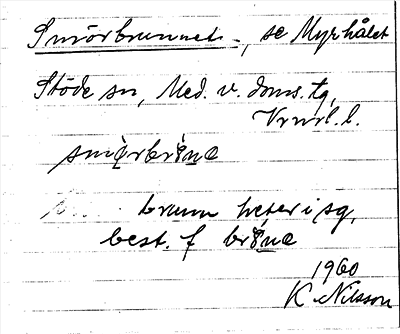 Smörbrunnet, se Myrhålet
Stöde sn, Med. v. doms. tg,
Vrnrl. l.
brunn heter i sg.
best. f
1960
K. Nilsson